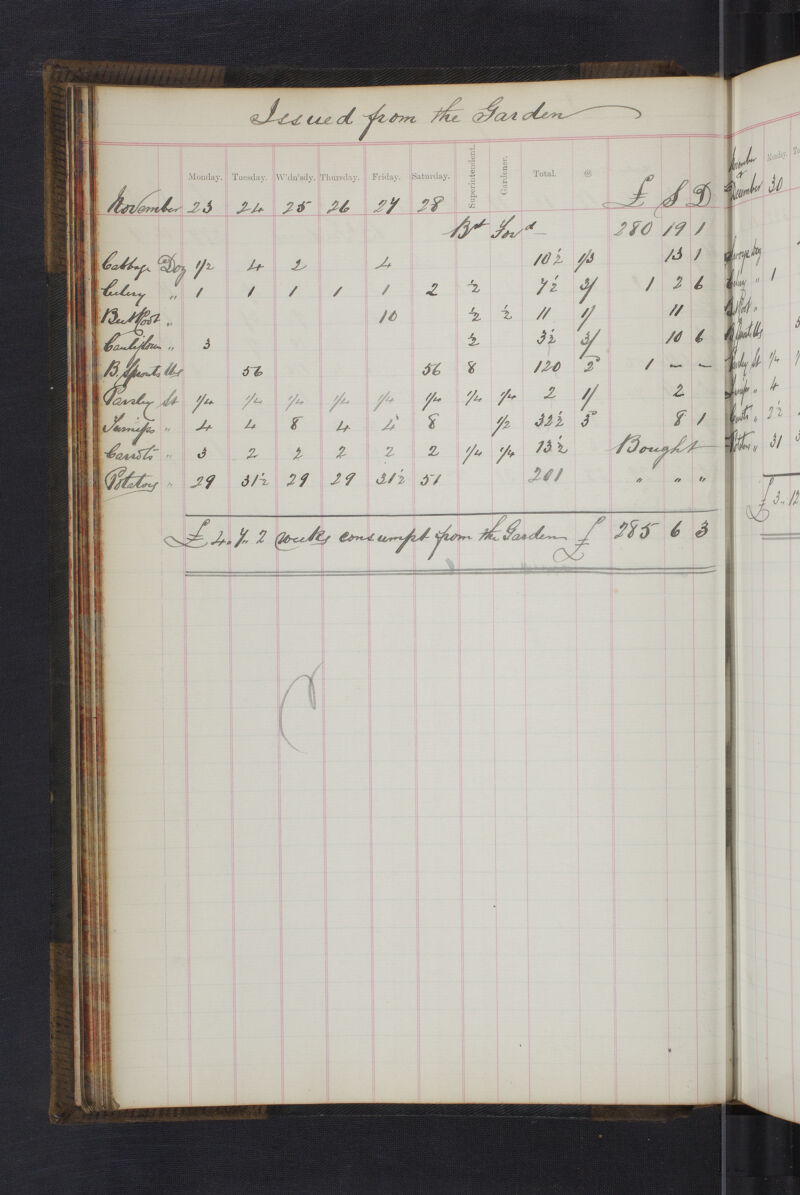 Issued from the Garden
Monday. Tuesday. W'dn'sdy. Thursday. Friday. Saturday. Superintendent. Gardener. Total. @
November 23 24 25 26 27 28 £ S D
Bt Ford 280 19 1
Cabbage Doz 1/2 4 2 4 10½ 1/3 13 1
Celery " 1 1 1 1 1 2 ½ 7½ 3/ 1 2 6
Beet Root " 10 ½ ½ 11 1/ 11
Cauliflour " 3 ½ 3½ 3/ 10 6
B. Sprouts lbs 56 56 8 120 2 1 - -
Parsley St 1/4 1/4 1/4 1/4 1/4 1/4 1/4 1/4 2 1/ 2
Turnips " 4 4 8 4 4 8 1/2 32½ 3 8 1
Carrots " 3 2 2 2 2 2 1/4 1/4 13½ Bought
Potatoes " 29 31½ 29 29 31½ 51 201 " " "
£4.7.2 weeks consumpt from the Garden £ 285 6 3
December 30
Monday.
Celery " 1
B. Root "
B. Sprouts lbs
Parsley St 1/4
Turnips " 4
Carrots " 2½
Potatoes " 31
£ 3.. 12